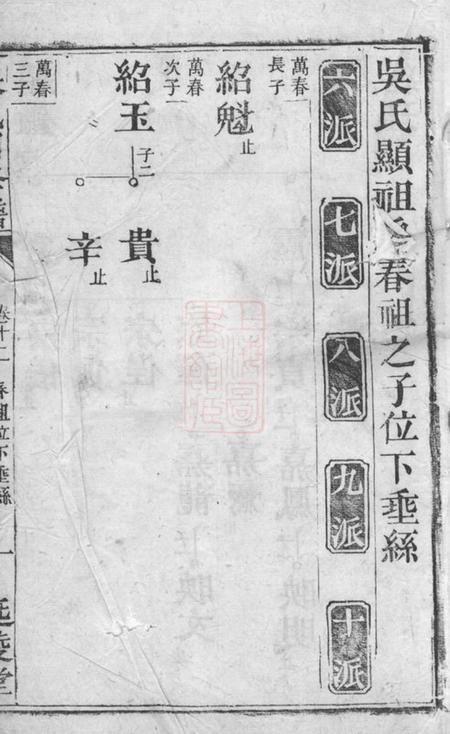 吳氏顯祖 春祖之子位下垂絲
六派 七派 八派 九派 十派
萬春長子
紹魁止
萬春次子
紹玉 子二 貴止
辛止
萬春三子
卷十二 春祖位下垂絲 一 延陵堂
上海图书馆藏